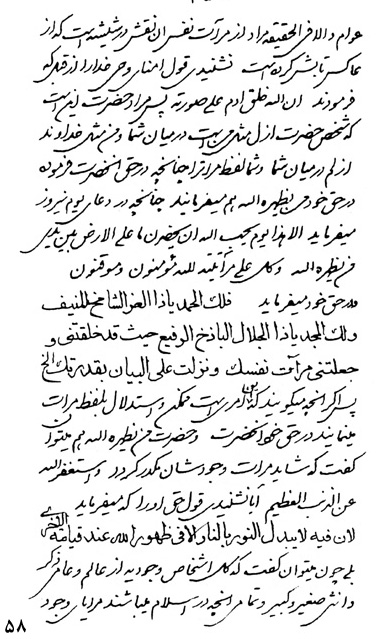 عوام والا فی الحقیقه مراد از مرآت نفس آن نقش در شیشه است که از
عاکس تابش کرده است نشنیدی قول امنای وحی خدا را از قبل که
فرمودند ان الله خلق ادم علی صورته پس مراد حضرت این است
که شخص حضرت ازل مثل من است در میان شما و من مثل خداوند
از لم در میان شما و شما لفظ مرآت را چنانچه در حق آنحضرت فرموده
در حق خود من یظهره الله هم میفرماید چنانچه در دعای یوم نیروز
میفرماید الا هذا یوم یحب الله ان یحضرن ما علی الارض بین یدی
من یظهره الله و کل علی مرآتیته لله مؤمنون و موقنون
و در حق خود میفرماید فلک الحمد یا ذا العز الشامخ المنیف
ولک المجد یا ذا الجلال الباذخ الرفیع حیث قد خلقتنی و
جعلتنی مرآت نفسک و نزلت علی البیان بقدرتک الخ
پس اگر آنچه میگویند که این امری است ممکن و استدلال بلفظ مرات
مینمایند در حق خود آنحضرت و حضرت من یظهره الله هم میتوان
گفت که شاید مرات وجودشان مکدر گردد و استغفر الله
عن الذنب العظیم آیا نشنیدی قول حق اورا که میفرماید
لان فیه لا یبدل النور بالنار الا فی ظهور الله عند قیامة الاخری
بلی چون میتوان گفت که کل اشخاص وجودیه از عالم و عامی و ذکر
و انثی صغیر و کبیر و تمامی آنچه در اسلام میباشند مرایای وجود
۵۸